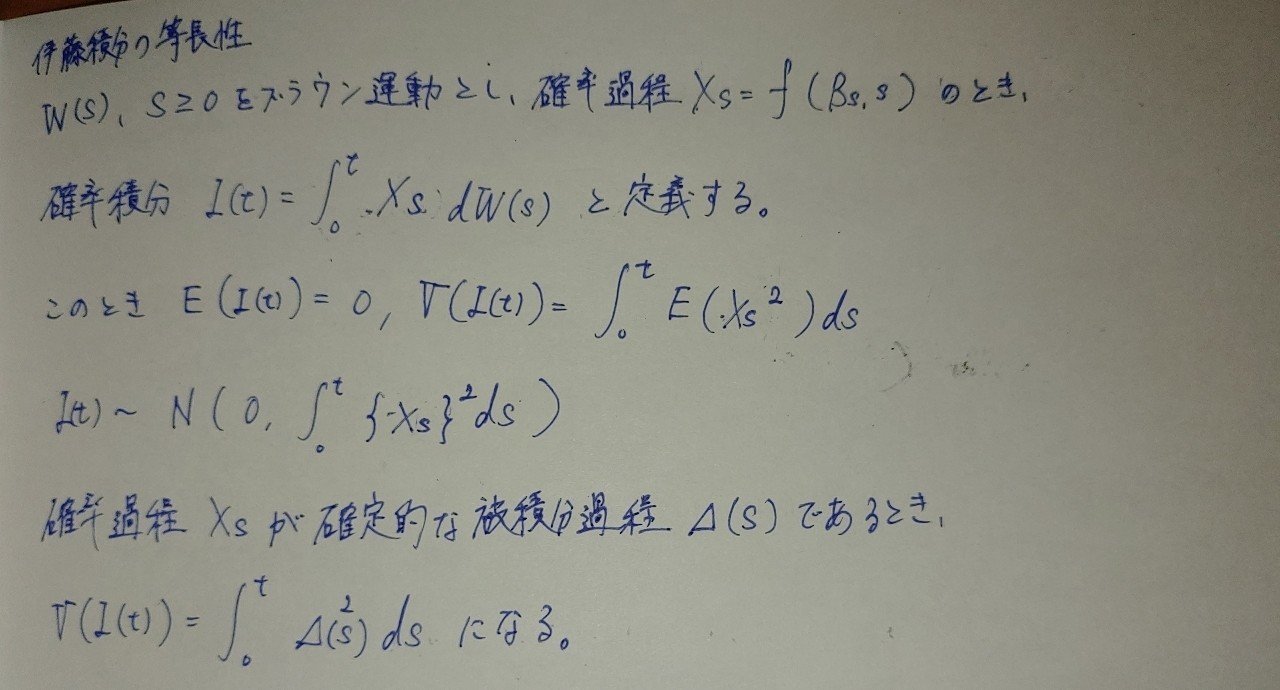 伊藤積分の等長性
W(s)、s≥0をブラウン運動とし、確率過程 Xs = f(Bs, s) のとき、
確率積分 I(t) = ∫₀ᵗ Xs dW(s) と定義する。
このとき E(I(t)) = 0, V(I(t)) = ∫₀ᵗ E(Xs²)ds
I(t) ~ N(0, ∫₀ᵗ {Xs}²ds)
確率過程 Xs が確定的な被積分過程 Δ(s) であるとき、
V(I(t)) = ∫₀ᵗ Δ²(s) ds になる。